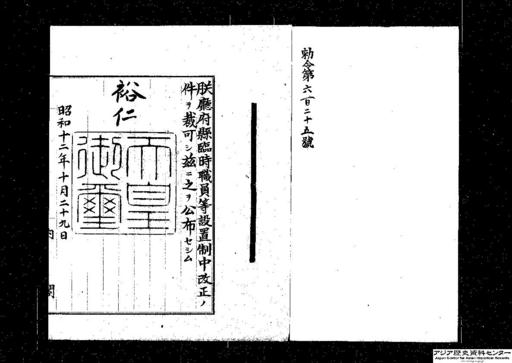 勅令第六百二十五號
朕廳府縣臨時職員等設置制中改正ノ
件ヲ裁可シ茲ニ之ヲ公布セシム
裕仁
天皇
御璽
昭和十二年十月二十九日
内閣
アジア歴史資料センター
Japan Center for Asian Historical Records